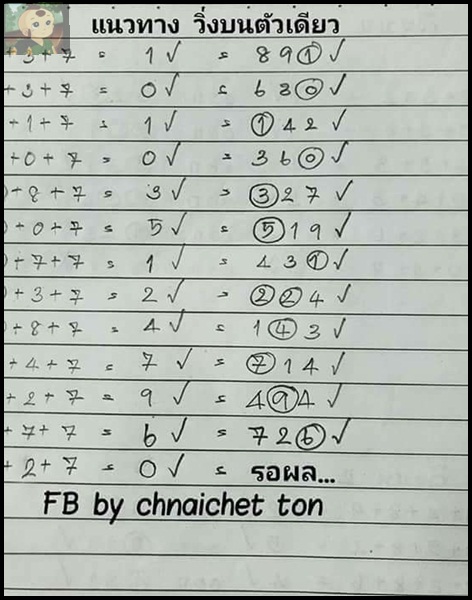 แนวทาง วิ่งบนตัวเดียว
+3+7 = 1 ✓ = 891 ✓
+3+7 = 0 ✓ = 630 ✓
+1+7 = 1 ✓ = 142 ✓
+0+7 = 0 ✓ = 360 ✓
)+8+7 = 3 ✓ = 327 ✓
)+0+7 = 5 ✓ = 519 ✓
)+7+7 = 1 ✓ = 431 ✓
)+3+7 = 2 ✓ = 224 ✓
)+8+7 = 4 ✓ = 143 ✓
+4+7 = 7 ✓ = 714 ✓
+2+7 = 9 ✓ = 494 ✓
+7+7 = 6 ✓ = 726 ✓
+2+7 = 0 ✓ = รอผล...
FB by chnaichet ton